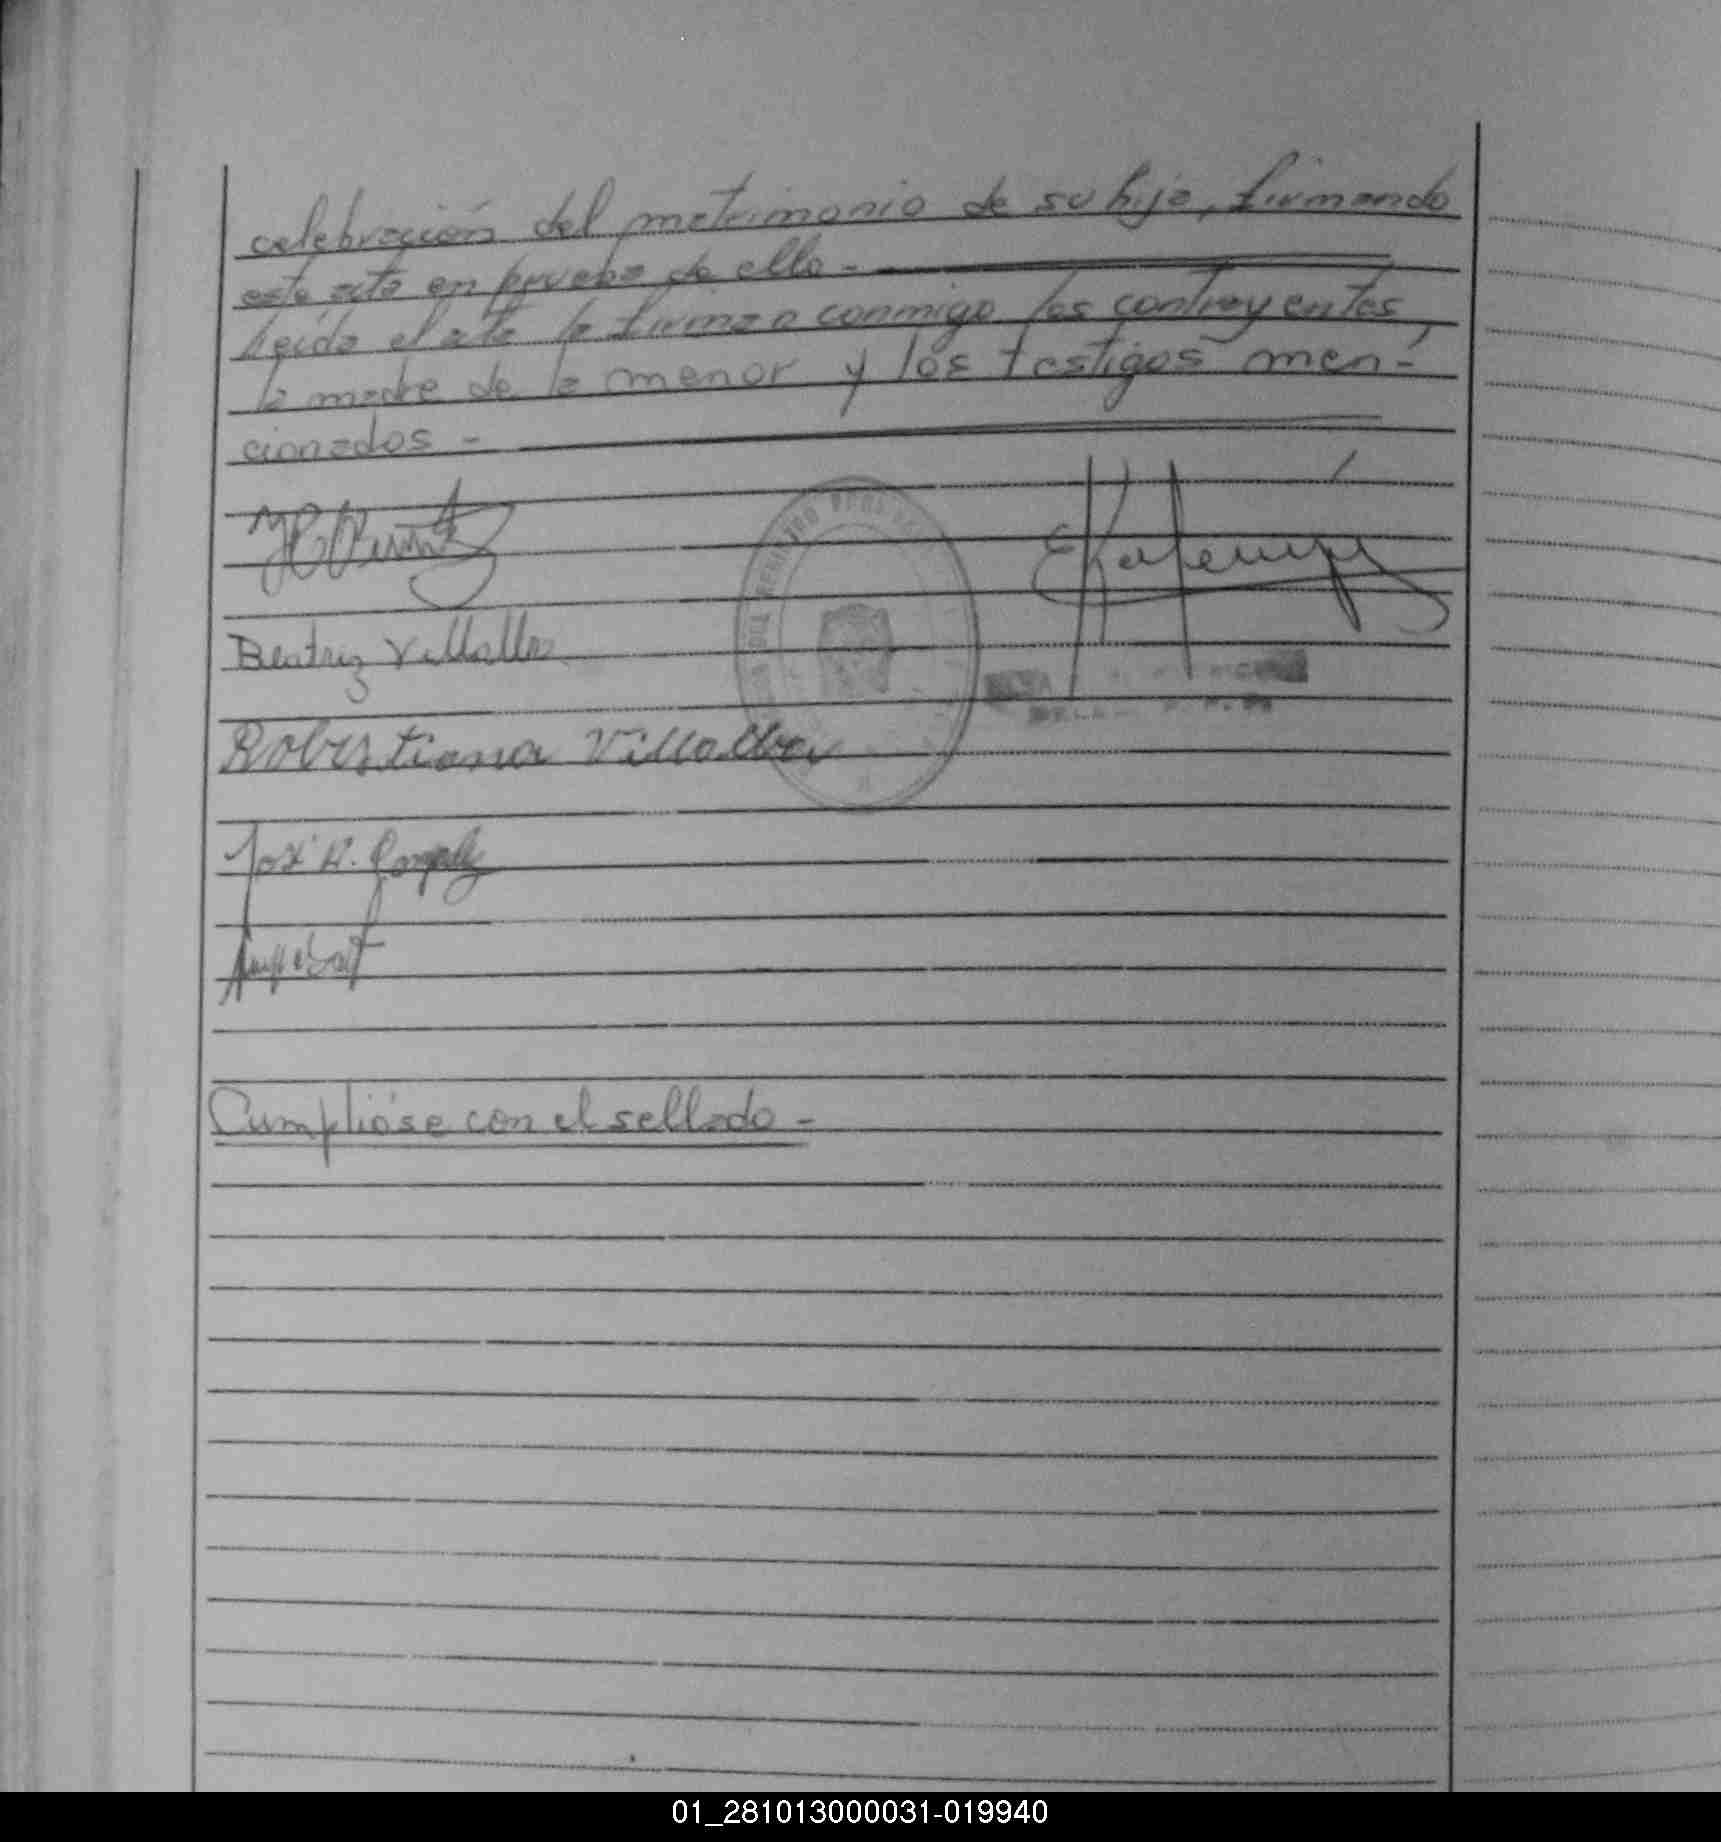 celebración del matrimonio de su hija, firmando
este acta en prueba de ello.-
Leída el acta la firman conmigo los contrayentes,
la madre de la menor y los testigos men-
cionados.-
Beatriz Villalba
Robustiana Villalba
José A. González
Cumplióse con el sellado.-
01_281013000031-019940